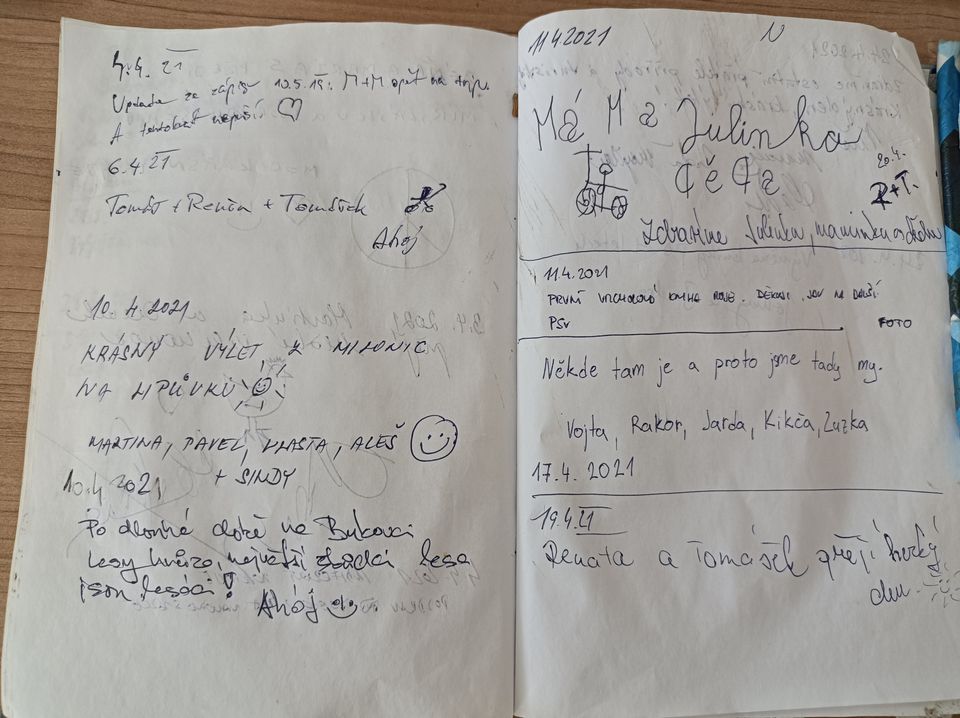 4.4. 21
Update ze zápisu 10.5.19. M+M opět na tripu.
A tentokrát neprší
6.4.21
Tomáš + Renča + Tomášek
Ahoj
10. 4. 2021
KRÁSNÝ VÝLET Z MILONIC
NA LIPŮVKU
MARTINA, PAVEL, VLASTA, ALEŠ
+ SINDY
10.4 2021
Po dlouhé době na Bukovci
Lesy hrůza, největší škůdci lesa
jsou lesáci!
Ahoj
11 4 2021
N
Má Ma Julinka
děda
20.4.
R+T.
Zdravíme Julinku, maminku a dědu
11.4.2021
PRVNÍ VRCHOLOVÁ KNIHA ROKU. DĚKUJI, JDU NA DALŠÍ
PSV
FOTO
Někde tam je a proto jsme tady my.
Vojta, Rakor, Jarda, Kikča, Zuzka
17.4. 2021
19.4.21
Renata a Tomášek přejí hezký
den